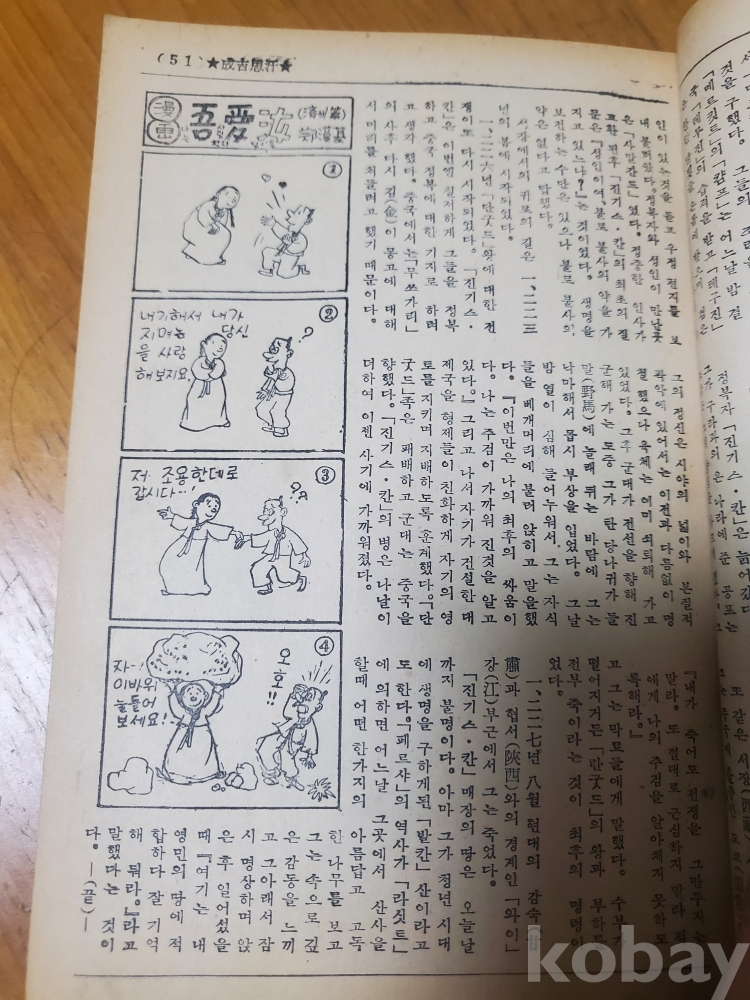 (51) ★成吉思汗★
인이 있는것을 듣고 우정 편지를 보
내 불러왔다. 정복자와 성인이 만난곳
은 「사말칸드」였다. 정중한 인사가
교환된후 「진기스·칸」의 최초의 질
문은 「성인이여, 불로 불사의 약을 가
지고 있느냐?」는 것이었다. 생명을
보전하는 수단은 있으나 불로 불사의
약은 없다고 답했다.
서장에서의 귀로의 길은 一、二二三
년의 봄에 시작되었다.
一、二二六年 「단굿드」황에 대한 전
쟁이 또 다시 시작되었다. 「진기스·
칸」은 이번엔 철저하게 그들을 정복
하고 중국 정복에 대한 기지로 하려
고 생각했다. 중국에서는 「무쓰가리」
의 사후 다시 김(金)이 몽고에 대해
서 머리를 처들려고 했기 때문이다.
그의 정신은 시야의 넓이와 본질적
파악에 있어서는 이전과 다름없이 명
철했으나 육체는 이미 최퇴해 가고
있었다. 그후 군대가 전선을 향해 진
군해 가는 도중 그가 탄 당나귀가 들
말(野馬)에 놀래 뛰는 바람에 그는
낙마해서 몹시 부상을 입었다. 그날
밤 열이 심해 들어누워서、그는 자식
들을 베개머리에 불러 앉히고 말을했
다. 『이번만은 나의 최후의 싸움이
다. 나는 주검이 가까워 진것을 알고
있다.』 그리고 나서 자기가 건설한 대
제국을 형제들이 친화하게 자기의 영
토를 지키며 지배하도록 훈계했다. 「단
굿드」족은 패배하고 군대는 중국을
향했다. 「진기스·칸」의 병은 나날이
더하여 이젠 사기에 가까워졌다.
『내가 죽어도 전쟁을 그만두지는
말라. 또 절대로 근심하지 말라 적
에게 나의 주검을 알아채지 못하도
록해라.』
고 그는 막료들에게 말했다. 수부가
떨어지거든 「만굿드」의 왕과 부하들
전부 죽이라는 것이 최후의 명령이
었다.
一、二二七년 八월 현대의 감숙(甘
肅)과 협서(陝西)와의 경계인 「와이」
강(江)부근에서 그는 죽었다.
「진기스·칸」매장의 땅은 오늘날
까지 불명이다. 아마 그가 청년 시대
에 생명을 구하게된 「발칸」산이라고
도 한다. 「페르샤」의 역사가 「라싯트」
에 의하면 어느날 그곳에서 산사을
할때 어떤 한가지의 아름답고 고독
한 나무를 보고
그는 속으로 깊
은 감동을 느끼
고 그아래서 잠
시 명상하며 앉
은후 일어섰을
때 『여기는 내
영민의 땅에 적
합하다 잘 기억
해 둬라.』라고
말했다는 것이
다. ―(끝)―
漫画
吾愛汝
나는
(濟州篇)
鄭漢基
①
②
내기해서 내가
지며는 당신
을 사랑
해보지요.
?
③
저 조용한데로
갑시다…!
??
④
자…
이바위
늘들어
보세요!
오호!!
kobay